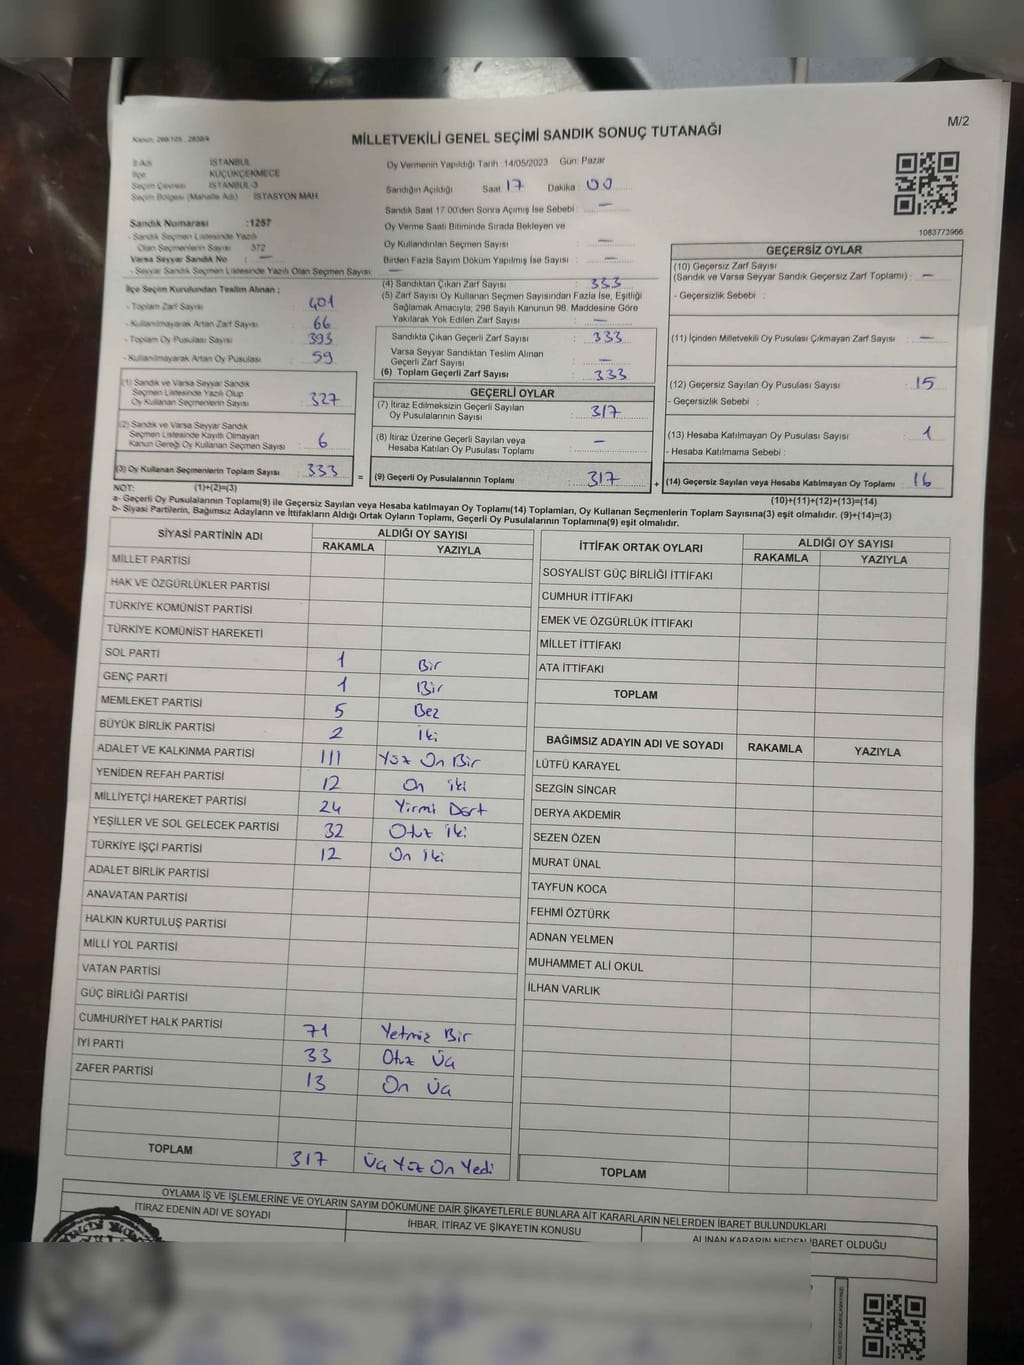 MİLLETVEKİLİ GENEL SEÇİMİ SANDIK SONUÇ TUTANAĞI
M/2
İl Adı İSTANBUL
İlçe KÜÇÜKÇEKMECE
Seçim Çevresi İSTANBUL-3
Seçim Bölgesi (Mahalle Adı) İSTASYON MAH.
Sandık Numarası :1257
- Sandık Seçmen Listesinde Yazılı
Olan Seçmenlerin Sayısı 372
Varsa Seyyar Sandık No : —
- Seyyar Sandık Seçmen Listesinde Yazılı Olan Seçmen Sayısı : —
İlçe Seçim Kurulundan Teslim Alınan ;
- Toplam Zarf Sayısı : 401
- Kullanılmayarak Artan Zarf Sayısı : 66
- Toplam Oy Pusulası Sayısı : 393
- Kullanılmayarak Artan Oy Pusulası : 59
(1) Sandık ve Varsa Seyyar Sandık
Seçmen Listesinde Yazılı Olup
Oy Kullanan Seçmenlerin Sayısı : 327
(2) Sandık ve Varsa Seyyar Sandık
Seçmen Listesinde Kayıtlı Olmayan
Kanun Gereği Oy Kullanan Seçmen Sayısı : 6
(3) Oy Kullanan Seçmenlerin Toplam Sayısı : 333
Oy Vermenin Yapıldığı Tarih : 14/05/2023 Gün: Pazar
Sandığın Açıldığı Saat : 17 Dakika : 00
Sandık Saat 17.00'den Sonra Açılmış İse Sebebi : —
Oy Verme Saati Bitiminde Sırada Bekleyen ve
Oy Kullandırılan Seçmen Sayısı : —
Birden Fazla Sayım Döküm Yapılmış İse Sayısı : —
(4) Sandıktan Çıkan Zarf Sayısı : 333
(5) Zarf Sayısı Oy Kullanan Seçmen Sayısından Fazla İse, Eşitliği
Sağlamak Amacıyla; 298 Sayılı Kanunun 98. Maddesine Göre
Yakılarak Yok Edilen Zarf Sayısı : —
Sandıkta Çıkan Geçerli Zarf Sayısı : 333
Varsa Seyyar Sandıktan Teslim Alınan
Geçerli Zarf Sayısı : —
(6) Toplam Geçerli Zarf Sayısı : 333
GEÇERLİ OYLAR
(7) İtiraz Edilmeksizin Geçerli Sayılan
Oy Pusulalarının Sayısı : 317
(8) İtiraz Üzerine Geçerli Sayılan veya
Hesaba Katılan Oy Pusulası Toplamı : —
= (9) Geçerli Oy Pusulalarının Toplamı : 317
1083773966
GEÇERSİZ OYLAR
(10) Geçersiz Zarf Sayısı
(Sandık ve Varsa Seyyar Sandık Geçersiz Zarf Toplamı) : —
- Geçersizlik Sebebi :
(11) İçinden Milletvekili Oy Pusulası Çıkmayan Zarf Sayısı : —
(12) Geçersiz Sayılan Oy Pusulası Sayısı : 15
- Geçersizlik Sebebi :
(13) Hesaba Katılmayan Oy Pusulası Sayısı : 1
- Hesaba Katılmama Sebebi :
+ (14) Geçersiz Sayılan veya Hesaba Katılmayan Oy Toplamı : 16
NOT: (1)+(2)=(3)
(10)+(11)+(12)+(13)=(14)
a- Geçerli Oy Pusulalarının Toplamı(9) ile Geçersiz Sayılan veya Hesaba katılmayan Oy Toplamı(14) Toplamları, Oy Kullanan Seçmenlerin Toplam Sayısına(3) eşit olmalıdır. (9)+(14)=(3)
b- Siyasi Partilerin, Bağımsız Adayların ve İttifakların Aldığı Ortak Oyların Toplamı, Geçerli Oy Pusulalarının Toplamına(9) eşit olmalıdır.
SİYASİ PARTİNİN ADI ALDIĞI OY SAYISI
RAKAMLA YAZIYLA
MİLLET PARTİSİ
HAK VE ÖZGÜRLÜKLER PARTİSİ
TÜRKİYE KOMÜNİST PARTİSİ
TÜRKİYE KOMÜNİST HAREKETİ
SOL PARTİ 1 Bir
GENÇ PARTİ 1 Bir
MEMLEKET PARTİSİ 5 Beş
BÜYÜK BİRLİK PARTİSİ 2 İki
ADALET VE KALKINMA PARTİSİ 111 Yüz On Bir
YENİDEN REFAH PARTİSİ 12 On iki
MİLLİYETÇİ HAREKET PARTİSİ 24 Yirmi Dört
YEŞİLLER VE SOL GELECEK PARTİSİ 32 Otuz İki
TÜRKİYE İŞÇİ PARTİSİ 12 On İki
ADALET BİRLİK PARTİSİ
ANAVATAN PARTİSİ
HALKIN KURTULUŞ PARTİSİ
MİLLİ YOL PARTİSİ
VATAN PARTİSİ
GÜÇ BİRLİĞİ PARTİSİ
CUMHURİYET HALK PARTİSİ 71 Yetmiş Bir
İYİ PARTİ 33 Otuz Üç
ZAFER PARTİSİ 13 On Üç
TOPLAM 317 Üç Yüz On Yedi
İTTİFAK ORTAK OYLARI ALDIĞI OY SAYISI
RAKAMLA YAZIYLA
SOSYALİST GÜÇ BİRLİĞİ İTTİFAKI
CUMHUR İTTİFAKI
EMEK VE ÖZGÜRLÜK İTTİFAKI
MİLLET İTTİFAKI
ATA İTTİFAKI
TOPLAM
BAĞIMSIZ ADAYIN ADI VE SOYADI RAKAMLA YAZIYLA
LÜTFÜ KARAYEL
SEZGİN SİNCAR
DERYA AKDEMİR
SEZEN ÖZEN
MURAT ÜNAL
TAYFUN KOCA
FEHMİ ÖZTÜRK
ADNAN YELMEN
MUHAMMET ALİ OKUL
İLHAN VARLIK
TOPLAM
OYLAMA İŞ VE İŞLEMLERİNE VE OYLARIN SAYIM DÖKÜMÜNE DAİR ŞİKAYETLERLE BUNLARA AİT KARARLARIN NELERDEN İBARET BULUNDUKLARI
İTİRAZ EDENİN ADI VE SOYADI İHBAR, İTİRAZ VE ŞİKAYETİN KONUSU ALINAN KARARIN NEDEN İBARET OLDUĞU